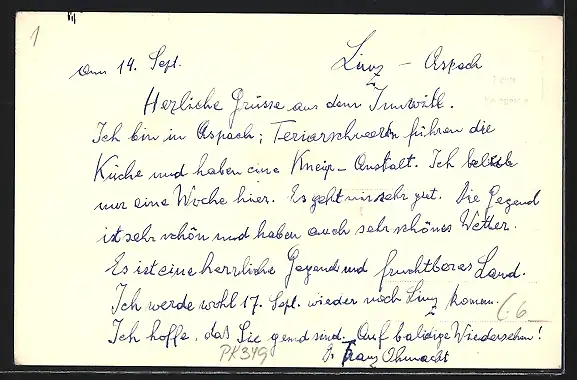 1
am 14. Sept. Linz - Aspach
Herzliche Grüsse aus dem Innvitl.
Ich bin in Aspach; führen die
Küche und haben eine Kneip-Anstalt. Ich
nur eine Woche hier. Es geht mir sehr gut. Die Gegend
ist sehr schön und haben auch sehr schönes Wetter.
Es ist eine herrliche Gegend und fruchtbares Land.
Ich werde wohl 17. Sept. wieder nach Linz komen.
Ich hoffe, das Sie gesund sind. Auf baldige Wiedersehen!
PK349 Franz Ohnmacht